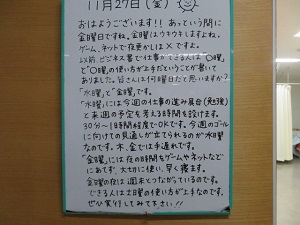 11月27日(金)
おはようございます!! あっという間に
金曜日ですね。金曜はウキウキしますよね。
ゲーム、ネットで夜更かしは×ですよ。
以前、ビジネス書で「仕事ができる人は「〇曜」
と「〇曜」の使い方が上手だということが書いて
ありました。皆さんは何曜日だと思いますか?
「水曜」と「金曜」です。
「水曜」には今週の仕事の進み具合(処理)
と来週の予定を考える時間を設けます。
30分~1時間程度でOKです。今週のゴール
に向けての見通しが立てられるのが水曜
なのです。木、金では手遅れです。
「金曜」には夜の時間をゲームやネットなど
にあてず、大切に使い、早く寝ます。
金曜の夜は週末とつながっているのです。
できる人は土曜の使い方が上手なのです。
ぜひ実行してみて下さい!!